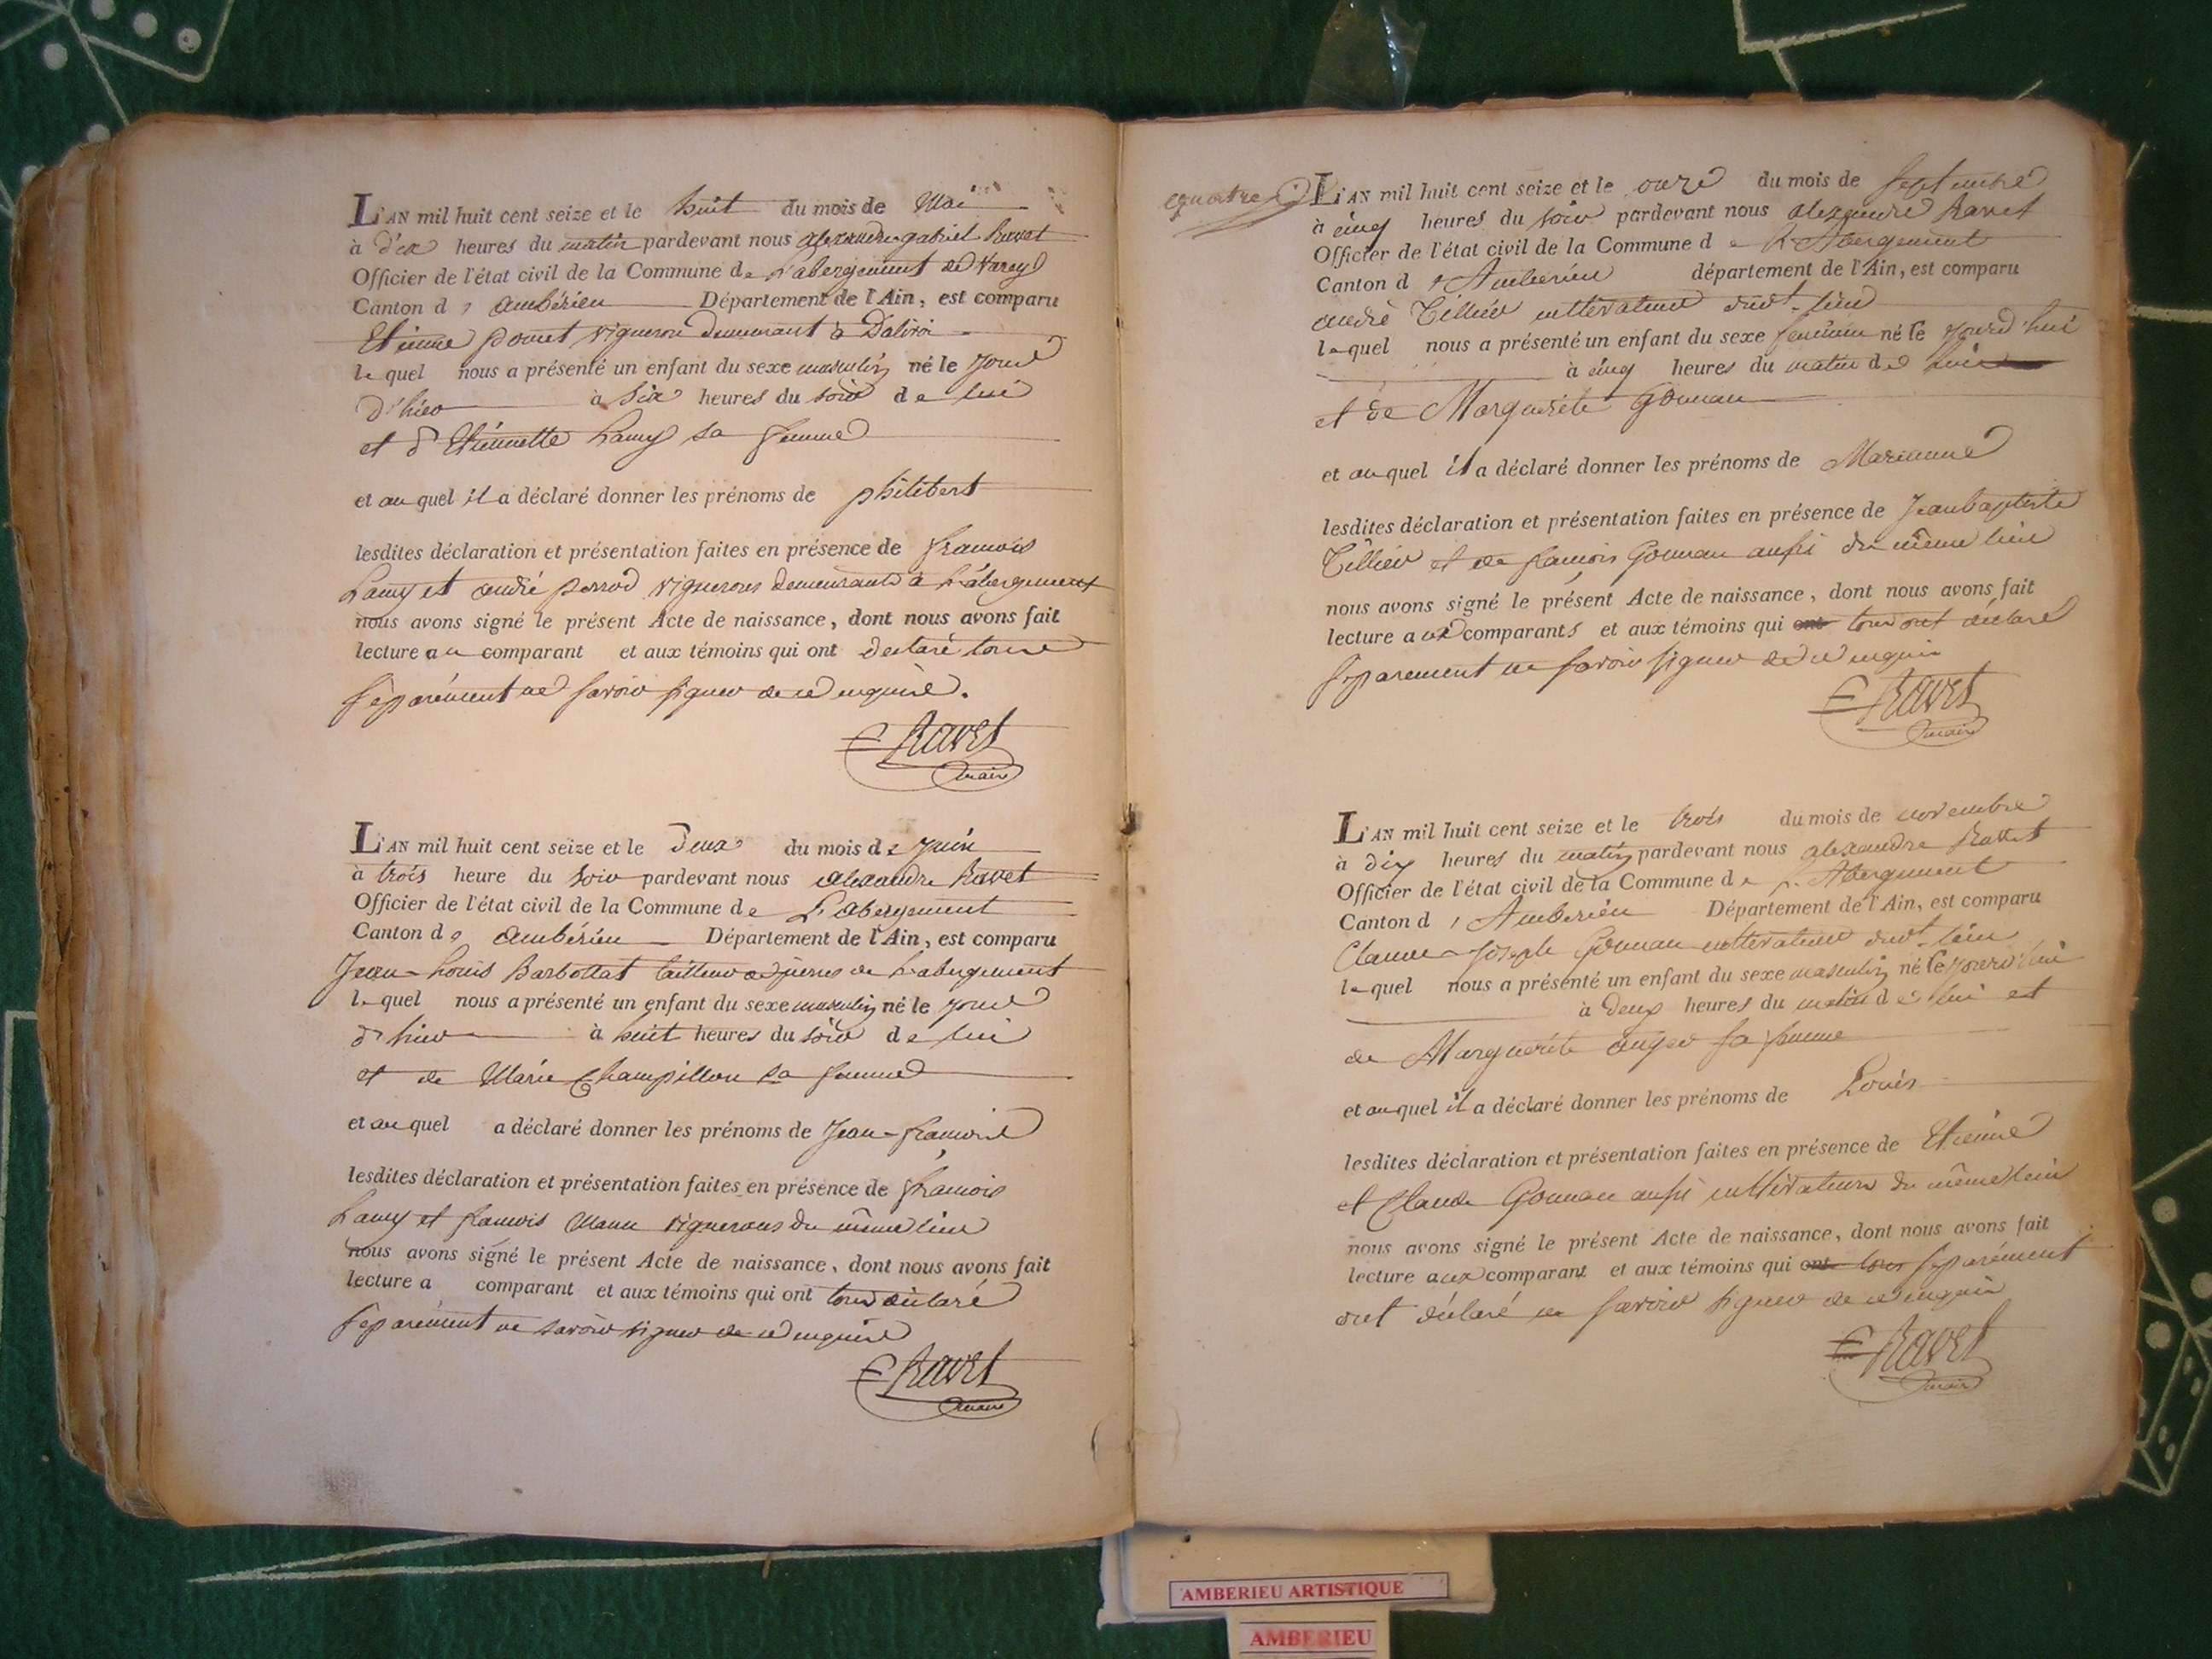 L'AN mil huit cent seize et le huit du mois de Mai
à dix heures du matin pardevant nous alexandre gabriel Ravet
Officier de l'état civil de la Commune de L'abergement de Varey
Canton d' ambérieu Département de l'Ain, est comparu
Etienne ponet vigneron demeurant à
le quel nous a présenté un enfant du sexe masculin né le jour
d'hier à six heures du soir de lui
et d'Etiennette Lamy sa femme
et au quel il a déclaré donner les prénoms de philibert
lesdites déclaration et présentation faites en présence de francois
Lamy et andré perrod vignerons demeurants à L'abergement
nous avons signé le présent Acte de naissance, dont nous avons fait
lecture au comparant et aux témoins qui ont declaré tous
séparément ne savoir signer de ce enquis.
Ravet
maire
L'AN mil huit cent seize et le deux du mois de juin
à trois heure du soir pardevant nous alexandre Ravet
Officier de l'état civil de la Commune de L'abergement
Canton d' ambérieu Département de l'Ain, est comparu
Jean-Louis Barbottat tailleur de pierres de L'abergement
le quel nous a présenté un enfant du sexe masculin né le jour
d'hier à huit heures du soir de lui
et de Marie Champillon sa femme
et au quel a déclaré donner les prénoms de Jean-francois
lesdites déclaration et présentation faites en présence de francois
Lamy et francois vignerons du même lieu
nous avons signé le présent Acte de naissance, dont nous avons fait
lecture a comparant et aux témoins qui ont tous déclaré
séparément ne savoir signer de ce enquis
Ravet
maire
quatre
L'AN mil huit cent seize et le onze du mois de septembre
à cinq heures du soir pardevant nous alexandre Ravet
Officier de l'état civil de la Commune de L'Abergement
Canton d'Amberieu département de l'Ain, est comparu
andré Tillier cultivateur dudt lieu
le quel nous a présenté un enfant du sexe feminin né le jourd'hui
à cinq heures du matin de lui
et de Marguerite Gonnan
et au quel il a déclaré donner les prénoms de Marianne
lesdites déclaration et présentation faites en présence de Jeanbaptiste
Tillier et de francois Gonnan aussi du même lieu
nous avons signé le présent Acte de naissance, dont nous avons fait
lecture aux comparants et aux témoins qui ont tous ont déclaré
séparement ne savoir signer de ce enquis
Ravet
maire
L'AN mil huit cent seize et le trois du mois de novembre
à dix heures du matin pardevant nous alexandre Ravet
Officier de l'état civil de la Commune de L'Abergement
Canton d'Amberieu Département de l'Ain, est comparu
Claude-Joseph Gonnan cultivateur dudt lieu
le quel nous a présenté un enfant du sexe masculin né le jourd'hui
à deux heures du matin de lui et
de Marguerite sa femme
et au quel il a déclaré donner les prénoms de Louis
lesdites déclaration et présentation faites en présence de Etienne
et Claude Gonnan aussi cultivateurs du même lieu
nous avons signé le présent Acte de naissance, dont nous avons fait
lecture aux comparant et aux témoins qui ont tous séparément
ont déclaré ne savoir signer de ce enquis
Ravet
maire
AMBERIEU ARTISTIQUE
AMBERIEU